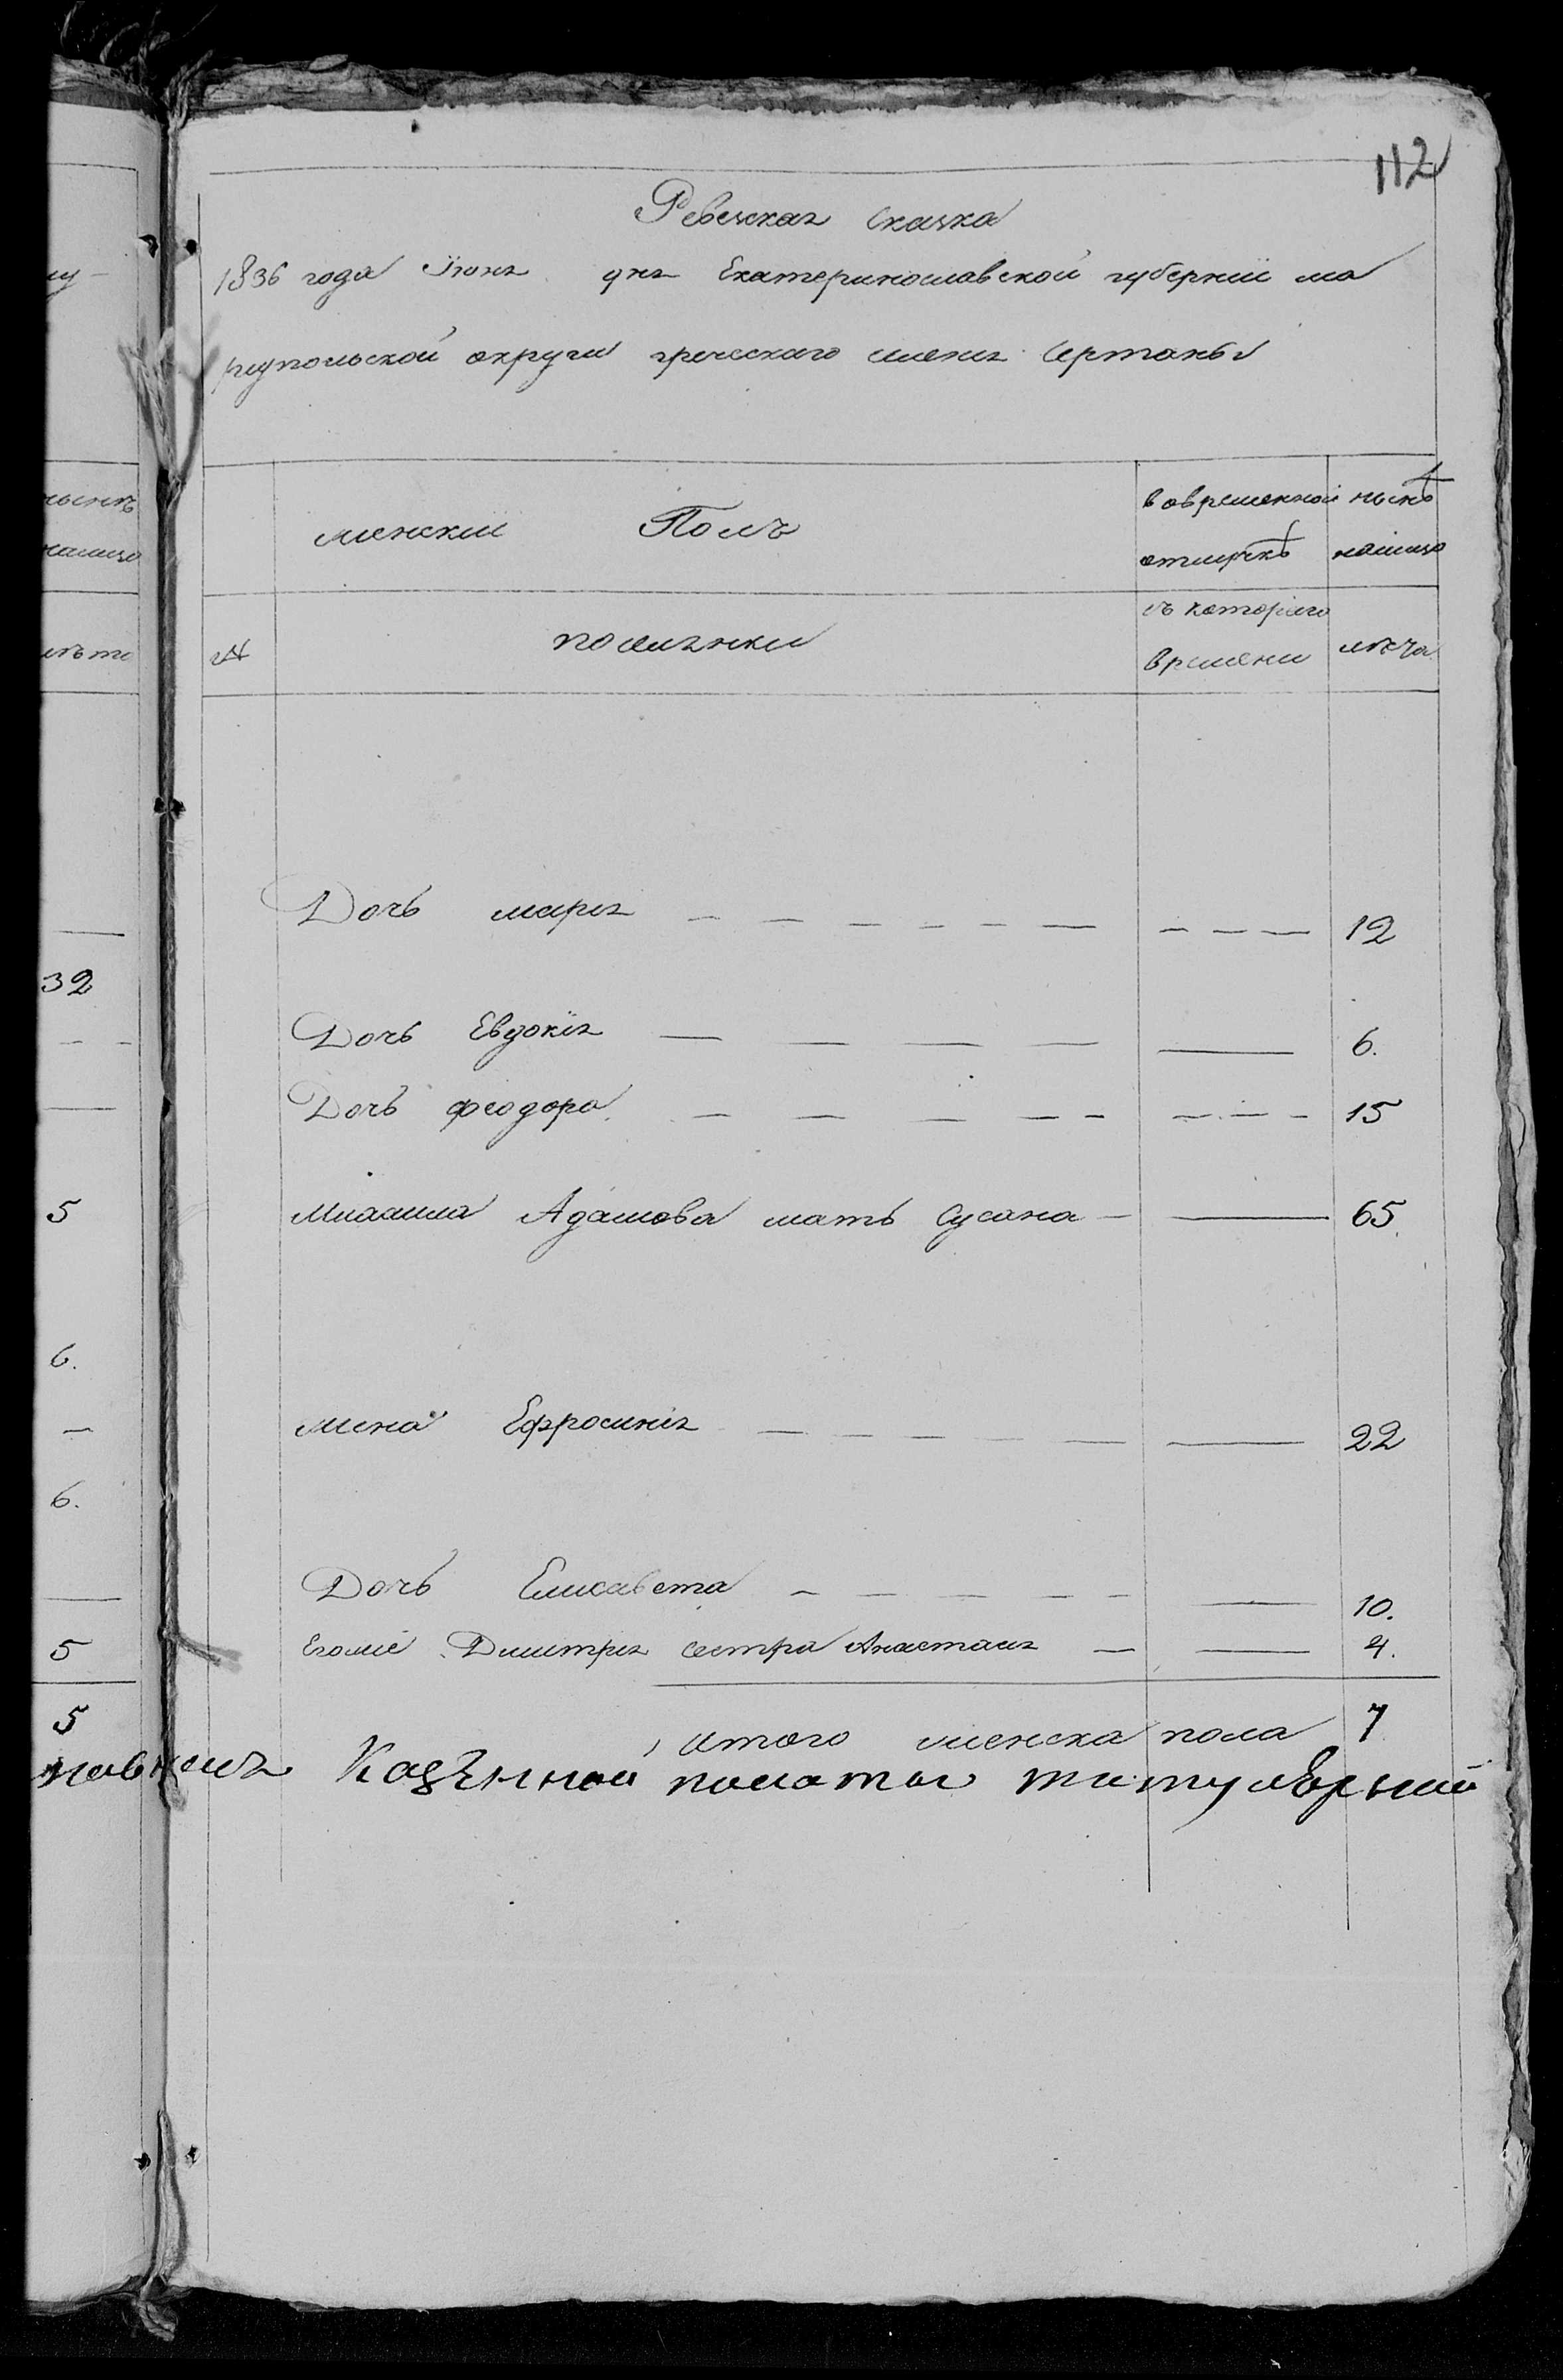 112
Ревизская Сказка
1836 года Іюня дня Екатеринославской губерніи ма
риупольской округи греческаго имения Сартаны
женский Полъ
вовременной отлучкѣ
нынѣ налицо
№
поселянки
съ котораго времени
лѣта
Дочь мария — — — 12
Дочь Евдокія — — — 6.
Дочь феодора — — — 15
Адамова мать Сусана — — 65.
жена Ефросиния — — — 22
Дочь Елисавета — — — 10.
Дмитрия сестра Анастасия — — 4.
итого женска пола 7
Казенной полаты титулярний
32
5
6.
6.
5
5